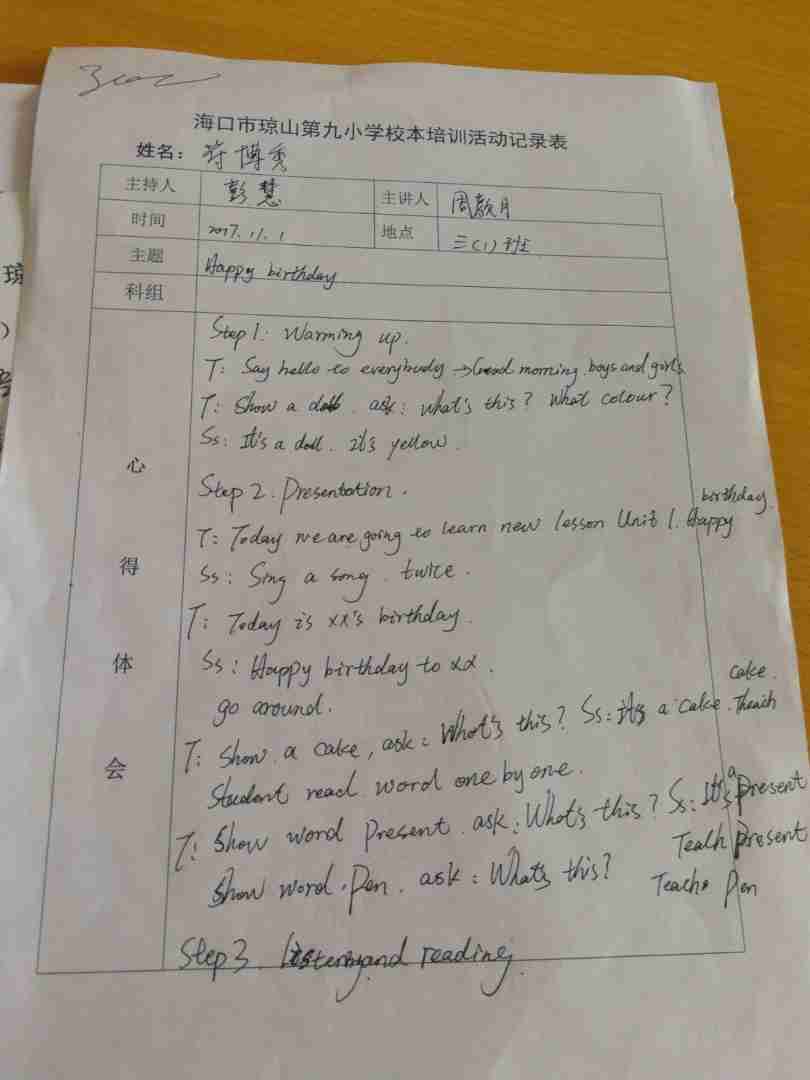 海口市琼山第九小学校本培训活动记录表
姓名：符博秀
主持人 彭慧 主讲人 周颜月
时间 2017.11.1 地点 三(1)班
主题 Happy birthday
科组
心得体会
Step 1: Warming up.
T: Say hello to everybody → Good morning, boys and girls
T: Show a doll. ask: what's this? What colour?
Ss: It's a doll. it's yellow.
Step 2. Presentation.
T: Today we are going to learn new lesson Unit 1. Happy birthday.
Ss: Sing a song. twice.
T: Today is xx's birthday.
Ss: Happy birthday to xx.
go around.
T: Show a cake, ask: What's this? Ss: it's a cake. Theach cake.
Student read word one by one.
T: Show word Present. ask: What's this? Ss: It's a present
Teach present
Show word. Pen. ask: What's this? Teach Pen
Step 3. Listening and reading.